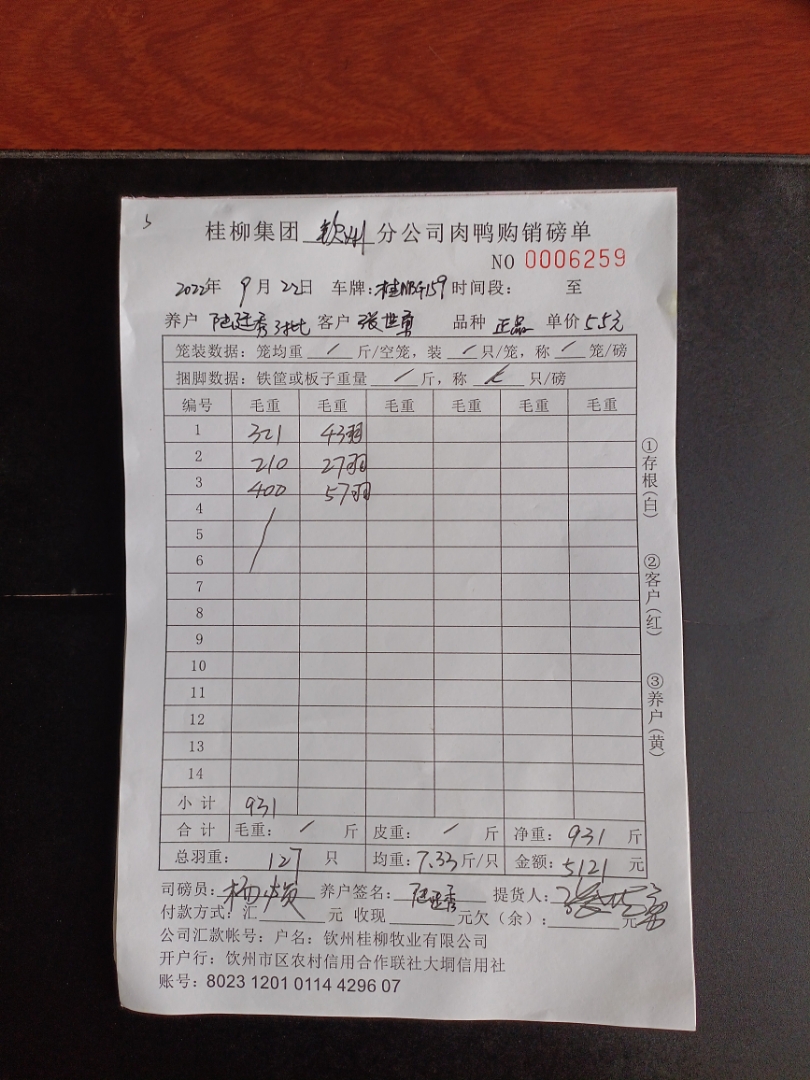 5
桂柳集团 钦州 分公司肉鸭购销磅单
NO 0006259
2022年 9月22日 车牌: 时间段: 至
养户 陆廷秀 3批 客户 张世勇 品种 正品 单价 5.5元
笼装数据: 笼均重 / 斤/空笼, 装 / 只/笼, 称 / 笼/磅
捆脚数据: 铁筐或板子重量 / 斤, 称 / 只/磅
编号 毛重 毛重 毛重 毛重 毛重 毛重
1 321 43羽
2 210 27羽
3 400 57羽
4
5
6
7
8
9
10
11
12
13
14
小计 931
合计 毛重: / 斤 皮重: / 斤 净重: 931 斤
总羽重: 127 只 均重: 7.33斤/只 金额: 5121 元
司磅员: 养户签名: 陆廷秀 提货人: 张世勇
付款方式: 汇 元 收现 元欠(余): 元
公司汇款帐号: 户名: 钦州桂柳牧业有限公司
开户行: 钦州市区农村信用合作联社大垌信用社
账号: 8023 1201 0114 4296 07
①存根(白)
②客户(红)
③养户(黄)